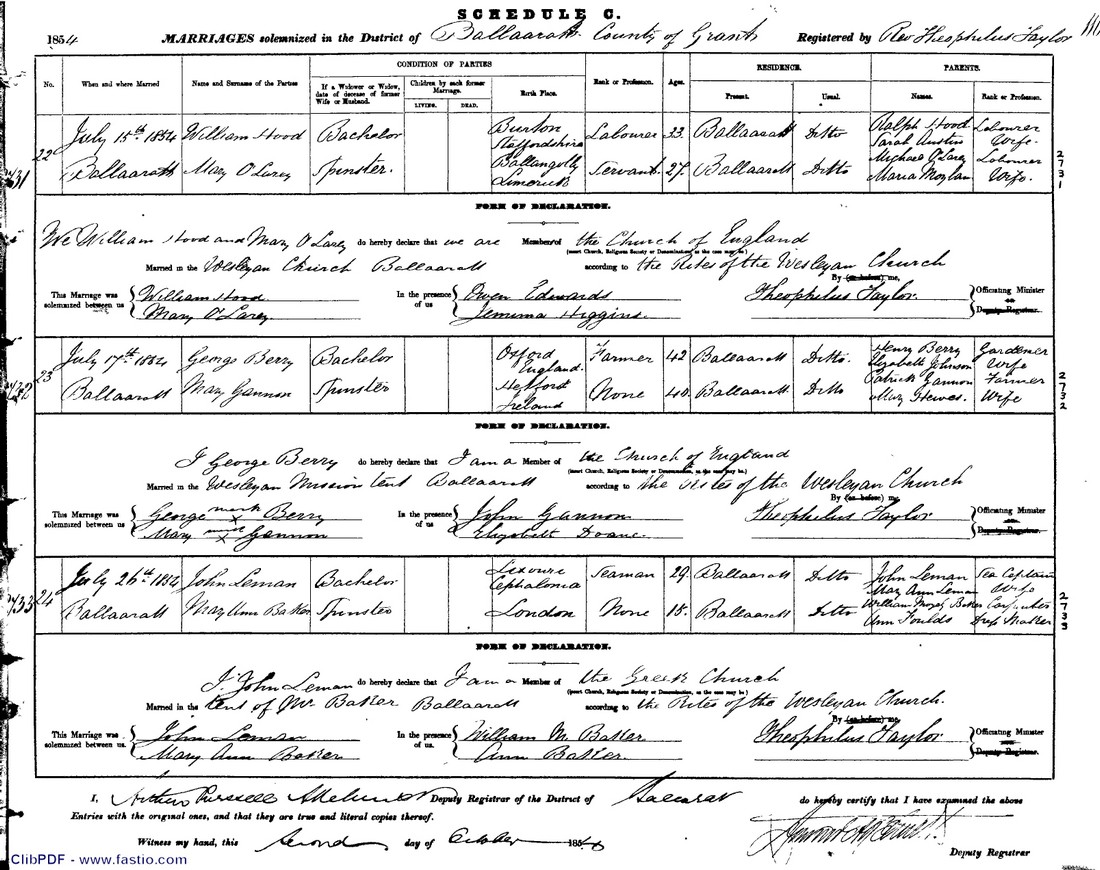 SCHEDULE C.
1854 MARRIAGES solemnized in the District of Ballaaratt County of Grant Registered by Rev Theophilus Taylor
No. When and where Married Name and Surname of the Parties CONDITION OF PARTIES Rank or Profession. Ages. RESIDENCE. PARENTS.
If a Widower or Widow, date of decease of former Wife or Husband. Children by each former Marriage. LIVING. DEAD. Birth Place. Present. Usual. Names. Rank or Profession.
22 July 15th 1854 William Hood Bachelor Burton Staffordshire Labourer 33 Ballaaratt Ditto Ralph Hood Labourer
Sarah Austin Wife
Ballaaratt Mary O'Larey Spinster. Ballangolly Limerick Servant 27 Ballaaratt Ditto Michael O'Larey Labourer
Maria Moylan Wife.
2731
FORM OF DECLARATION.
We William Hood and Mary O'Larey do hereby declare that we are Members of the Church of England
(insert Church, Religious Society or Denomination, as the case may be.)
Married in the Wesleyan Church Ballaaratt according to the Rites of the Wesleyan Church
By (as before) me,
This Marriage was solemnized between us William Hood In the presence of us Owen Edwards Theophilus Taylor Officiating Minister
or
Mary O'Larey Jemima Higgins Deputy Registrar.
23 July 17th 1854 George Berry Bachelor Oxford England Farmer 42 Ballaaratt Ditto. Henry Berry Gardener
Elizabeth Johnson Wife
Ballaaratt Mary Gannon Spinster Ireland None 40 Ballaaratt Ditto Patrick Gannon Farmer
Mary Hewes. Wife
2732
FORM OF DECLARATION.
I George Berry do hereby declare that I am a Member of the Church of England
(insert Church, Religious Society or Denomination, as the case may be.)
Married in the Wesleyan Mission tent Ballaaratt according to the Rites of the Wesleyan Church
By (as before) me,
This Marriage was solemnized between us George mark x Berry In the presence of us John Gannon Theophilus Taylor Officiating Minister
Mary mark x Gannon Elizabeth Doane Deputy Registrar.
24 July 26th 1854 John Leman Bachelor Lixouri Cephalonia Seaman 29 Ballaaratt Ditto John Leman Sea Captain
Mary Ann Leman Wife
Ballaaratt Mary Ann Baker Spinster London None 18 Ballaaratt Ditto William Baker Carpenter
Ann Foulds Dress Maker
2733
FORM OF DECLARATION.
I. John Leman do hereby declare that I am a Member of the Greek Church
(insert Church, Religious Society or Denomination, as the case may be.)
Married in the tent of Mr Baker Ballaaratt according to the Rites of the Wesleyan Church.
By (as before) me,
This Marriage was solemnized between us. John Leman In the presence of us. William M. Baker Theophilus Taylor Officiating Minister
Mary Ann Baker Ann Baker Deputy Registrar.
I, Arthur Purssell Deputy Registrar of the District of Ballarat do hereby certify that I have examined the above
Entries with the original ones, and that they are true and literal copies thereof.
Witness my hand, this Second day of October 1854
Deputy Registrar
ClibPDF - www.fastio.com